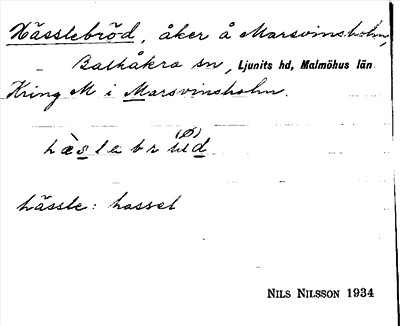 Hässlebröd, åker å Marsvinsholm,
Balkåkra sn, Ljunits hd, Malmöhus län.
Kring M i Marsvinsholm.
(Ø)
hässle: hassel
NILS NILSSON 1934